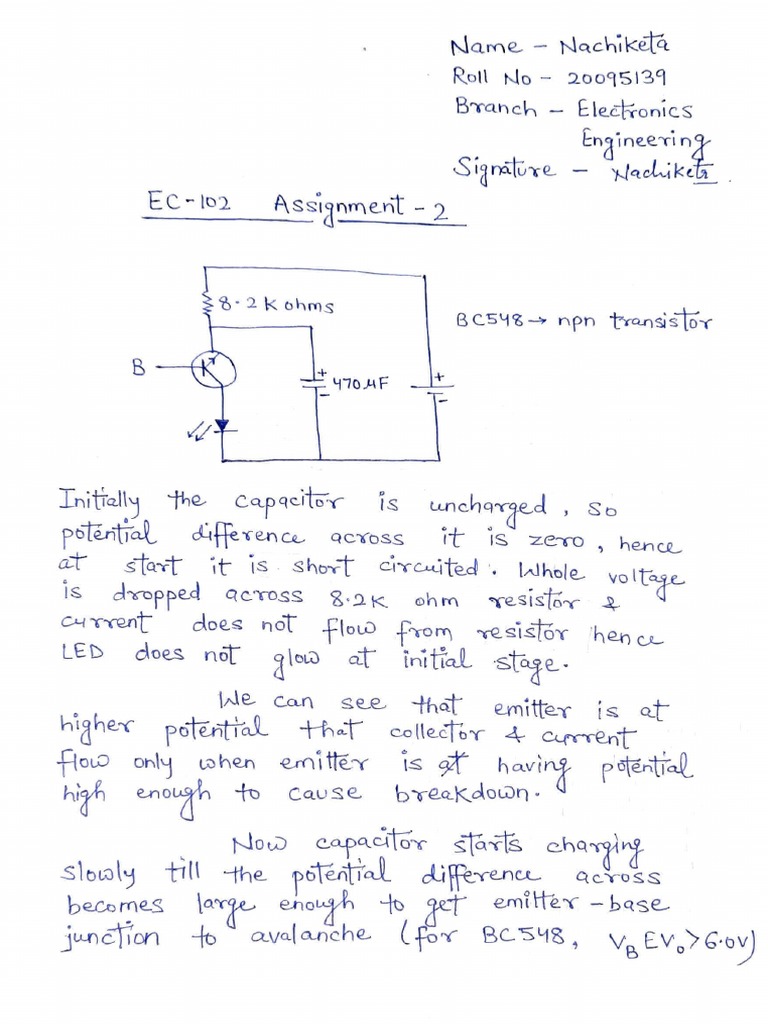 Name - Nachiketa
Roll No - 20095139
Branch - Electronics
Engineering
Signature - Nachiketa
EC-102 Assignment - 2
8.2 K ohms
BC548 → npn transistor
B
+
470 μF
-
+
-
Initially the capacitor is uncharged, so
potential difference across it is zero, hence
at start it is short circuited. Whole voltage
is dropped across 8.2K ohm resistor &
current does not flow from resistor hence
LED does not glow at initial stage.
We can see that emitter is at
higher potential that collector & current
flow only when emitter is at having potential
high enough to cause breakdown.
Now capacitor starts charging
slowly till the potential difference across
becomes large enough to get emitter-base
junction to avalanche (for BC548, VBEV₀>6.0V)